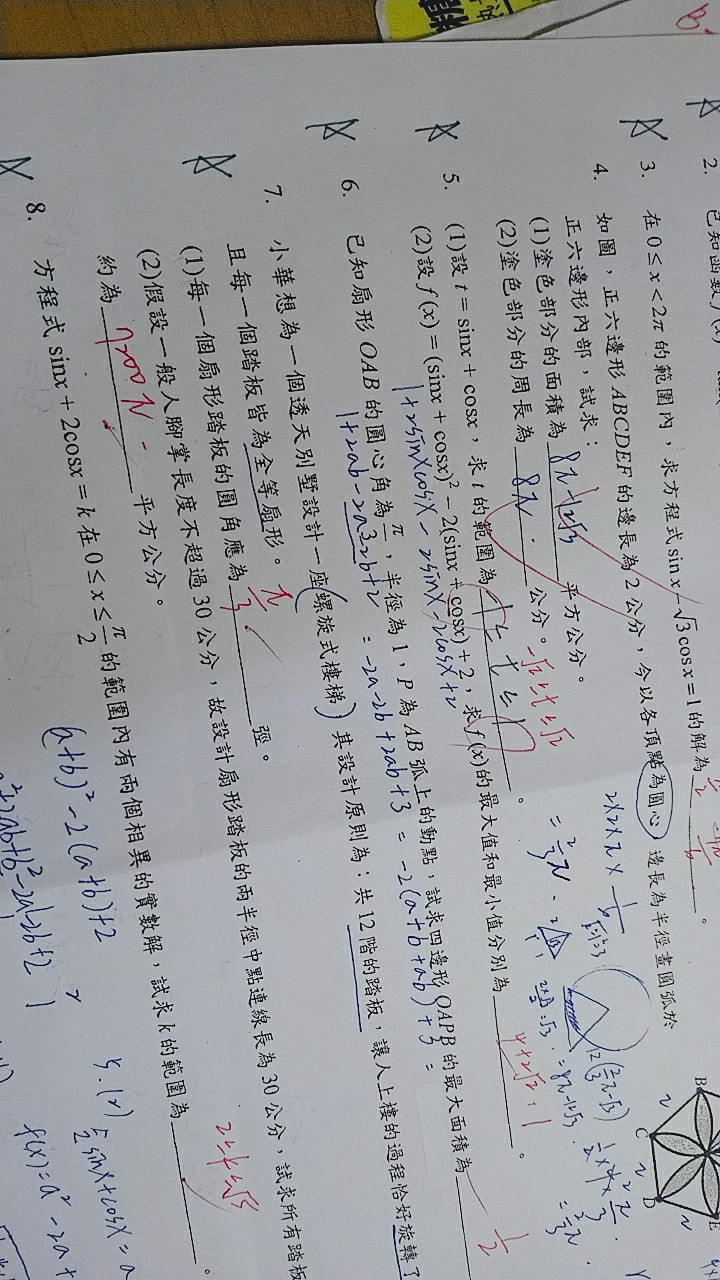 B.
2. 已知函數 f(x)
3. 在 0≤x<2π 的範圍內，求方程式 sinx-√3cosx=1 的解為 π/2 。
4. 如圖，正六邊形 ABCDEF 的邊長為 2 公分，今以各頂點為圓心，邊長為半徑畫圓弧於
正六邊形內部，試求：
(1)塗色部分的面積為 8π-12√3 平方公分。
(2)塗色部分的周長為 8π 公分。
5. (1)設 t=sinx+cosx，求 t 的範圍為 -1≤t≤1 。
-√2≤t≤√2
(2)設 f(x)=(sinx+cosx)²-2(sinx+cosx)+2，求 f(x) 的最大值和最小值分別為 4+2√2 = 1 。
1+2sinxcosx-2sinx-2cosx+2
6. 已知扇形 OAB 的圓心角為 π/ ，半徑為 1，P 為 AB 弧上的動點，試求四邊形 OAPB 的最大面積為 1/2
1+2ab-2a-2b+2 = -2a-2b+2ab+3 = -2(a+b+ab)+3 =
7. 小華想為一個透天別墅設計一座(螺旋式樓梯)其設計原則為：共 12 階的踏板，讓人上樓的過程恰好旋轉了
且每一個踏板皆為全等扇形。
(1)每一個扇形踏板的圓角應為 π/3 弳。
(2)假設一般人腳掌長度不超過 30 公分，故設計扇形踏板的兩半徑中點連線長為 30 公分，試求所有踏板
約為 7200π 平方公分。
8. 方程式 sinx+2cosx=k 在 0≤x≤π/2 的範圍內有兩個相異的實數解，試求 k 的範圍為 2≤k≤√5 。
(a+b)²-2(a+b)+2
2×2×π×1/6
=2/3π
12(2/3π-√3)
=8π-12√3
=2/3π
5.(2)
sinx+cosx=a
f(x)=a²-2a+
B
C
D
E
2
2
2